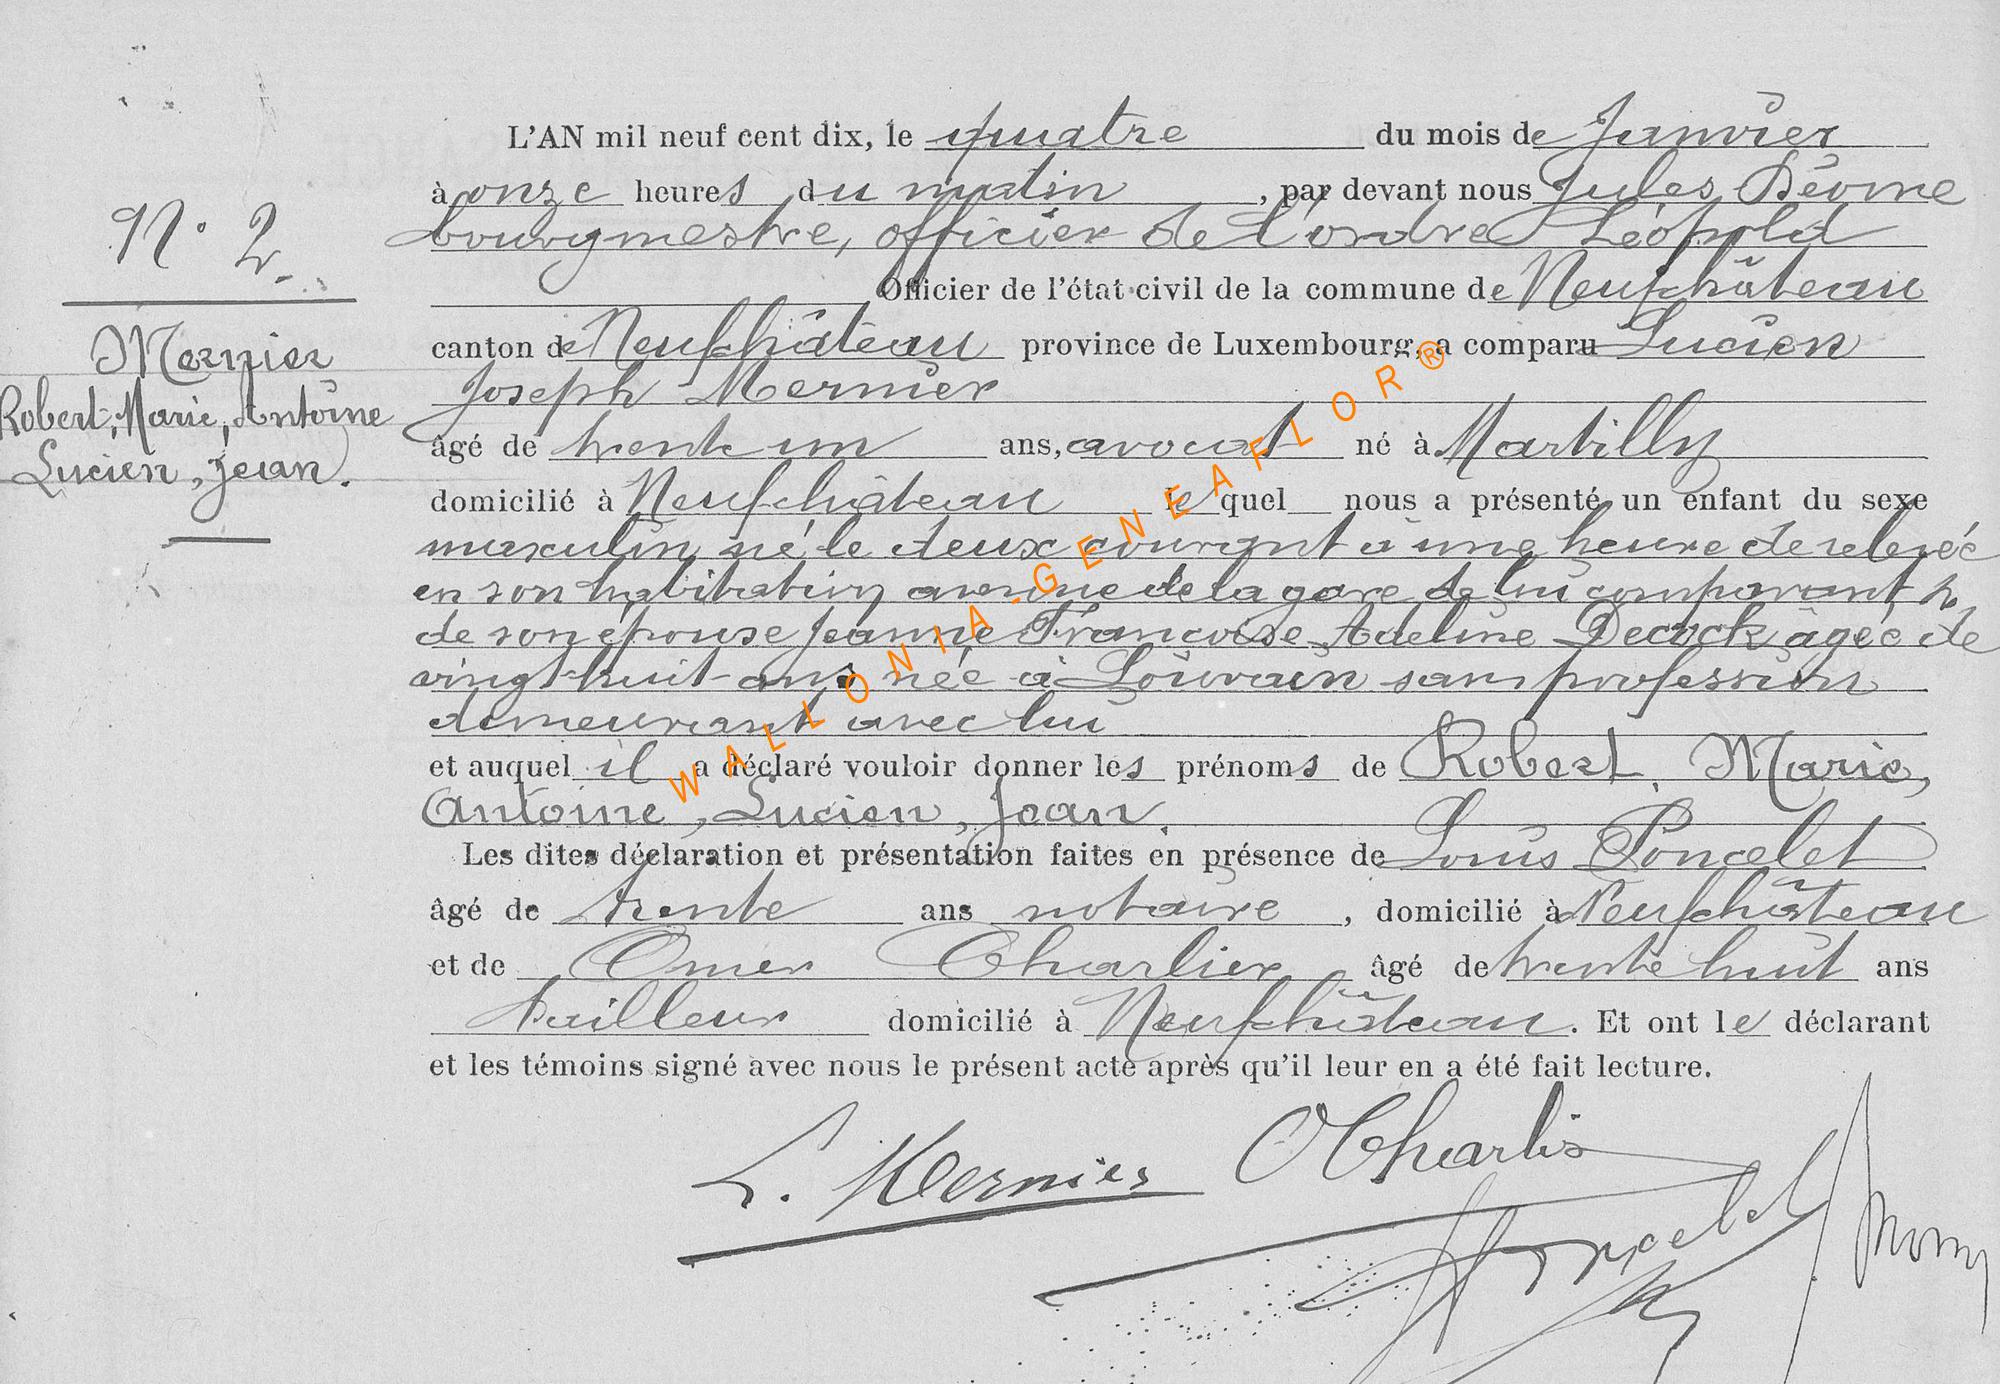 N° 2.
Mernier
Robert, Marie, Antoine
Lucien, Jean.
L'AN mil neuf cent dix, le quatre du mois de Janvier
à onze heures du matin, par devant nous Jules
bourgmestre, officier de l'ordre Léopold
Officier de l'état civil de la commune de Neufchâteau
canton de Neufchâteau province de Luxembourg, a comparu Lucien
Joseph Mernier
âgé de trente un ans, avocat né à Martilly
domicilié à Neufchâteau lequel nous a présenté un enfant du sexe
masculin né le deux courant à une heure de relevée
en son habitation avenue de la gare de lui comparant &
de son épouse Jeanne Françoise Adeline Decock âgée de
vingt-huit ans née à Louvain sans profession
demeurant avec lui
et auquel il a déclaré vouloir donner les prénoms de Robert, Marie,
Antoine, Lucien, Jean.
Les dites déclaration et présentation faites en présence de Louis Poncelet
âgé de trente ans notaire, domicilié à Neufchâteau
et de Omer Charlier âgé de trente huit ans
tailleur domicilié à Neufchâteau. Et ont le déclarant
et les témoins signé avec nous le présent acte après qu'il leur en a été fait lecture.
L. Mernier O Charlier
Poncelet
WALLONIA-GENEAFLOR®